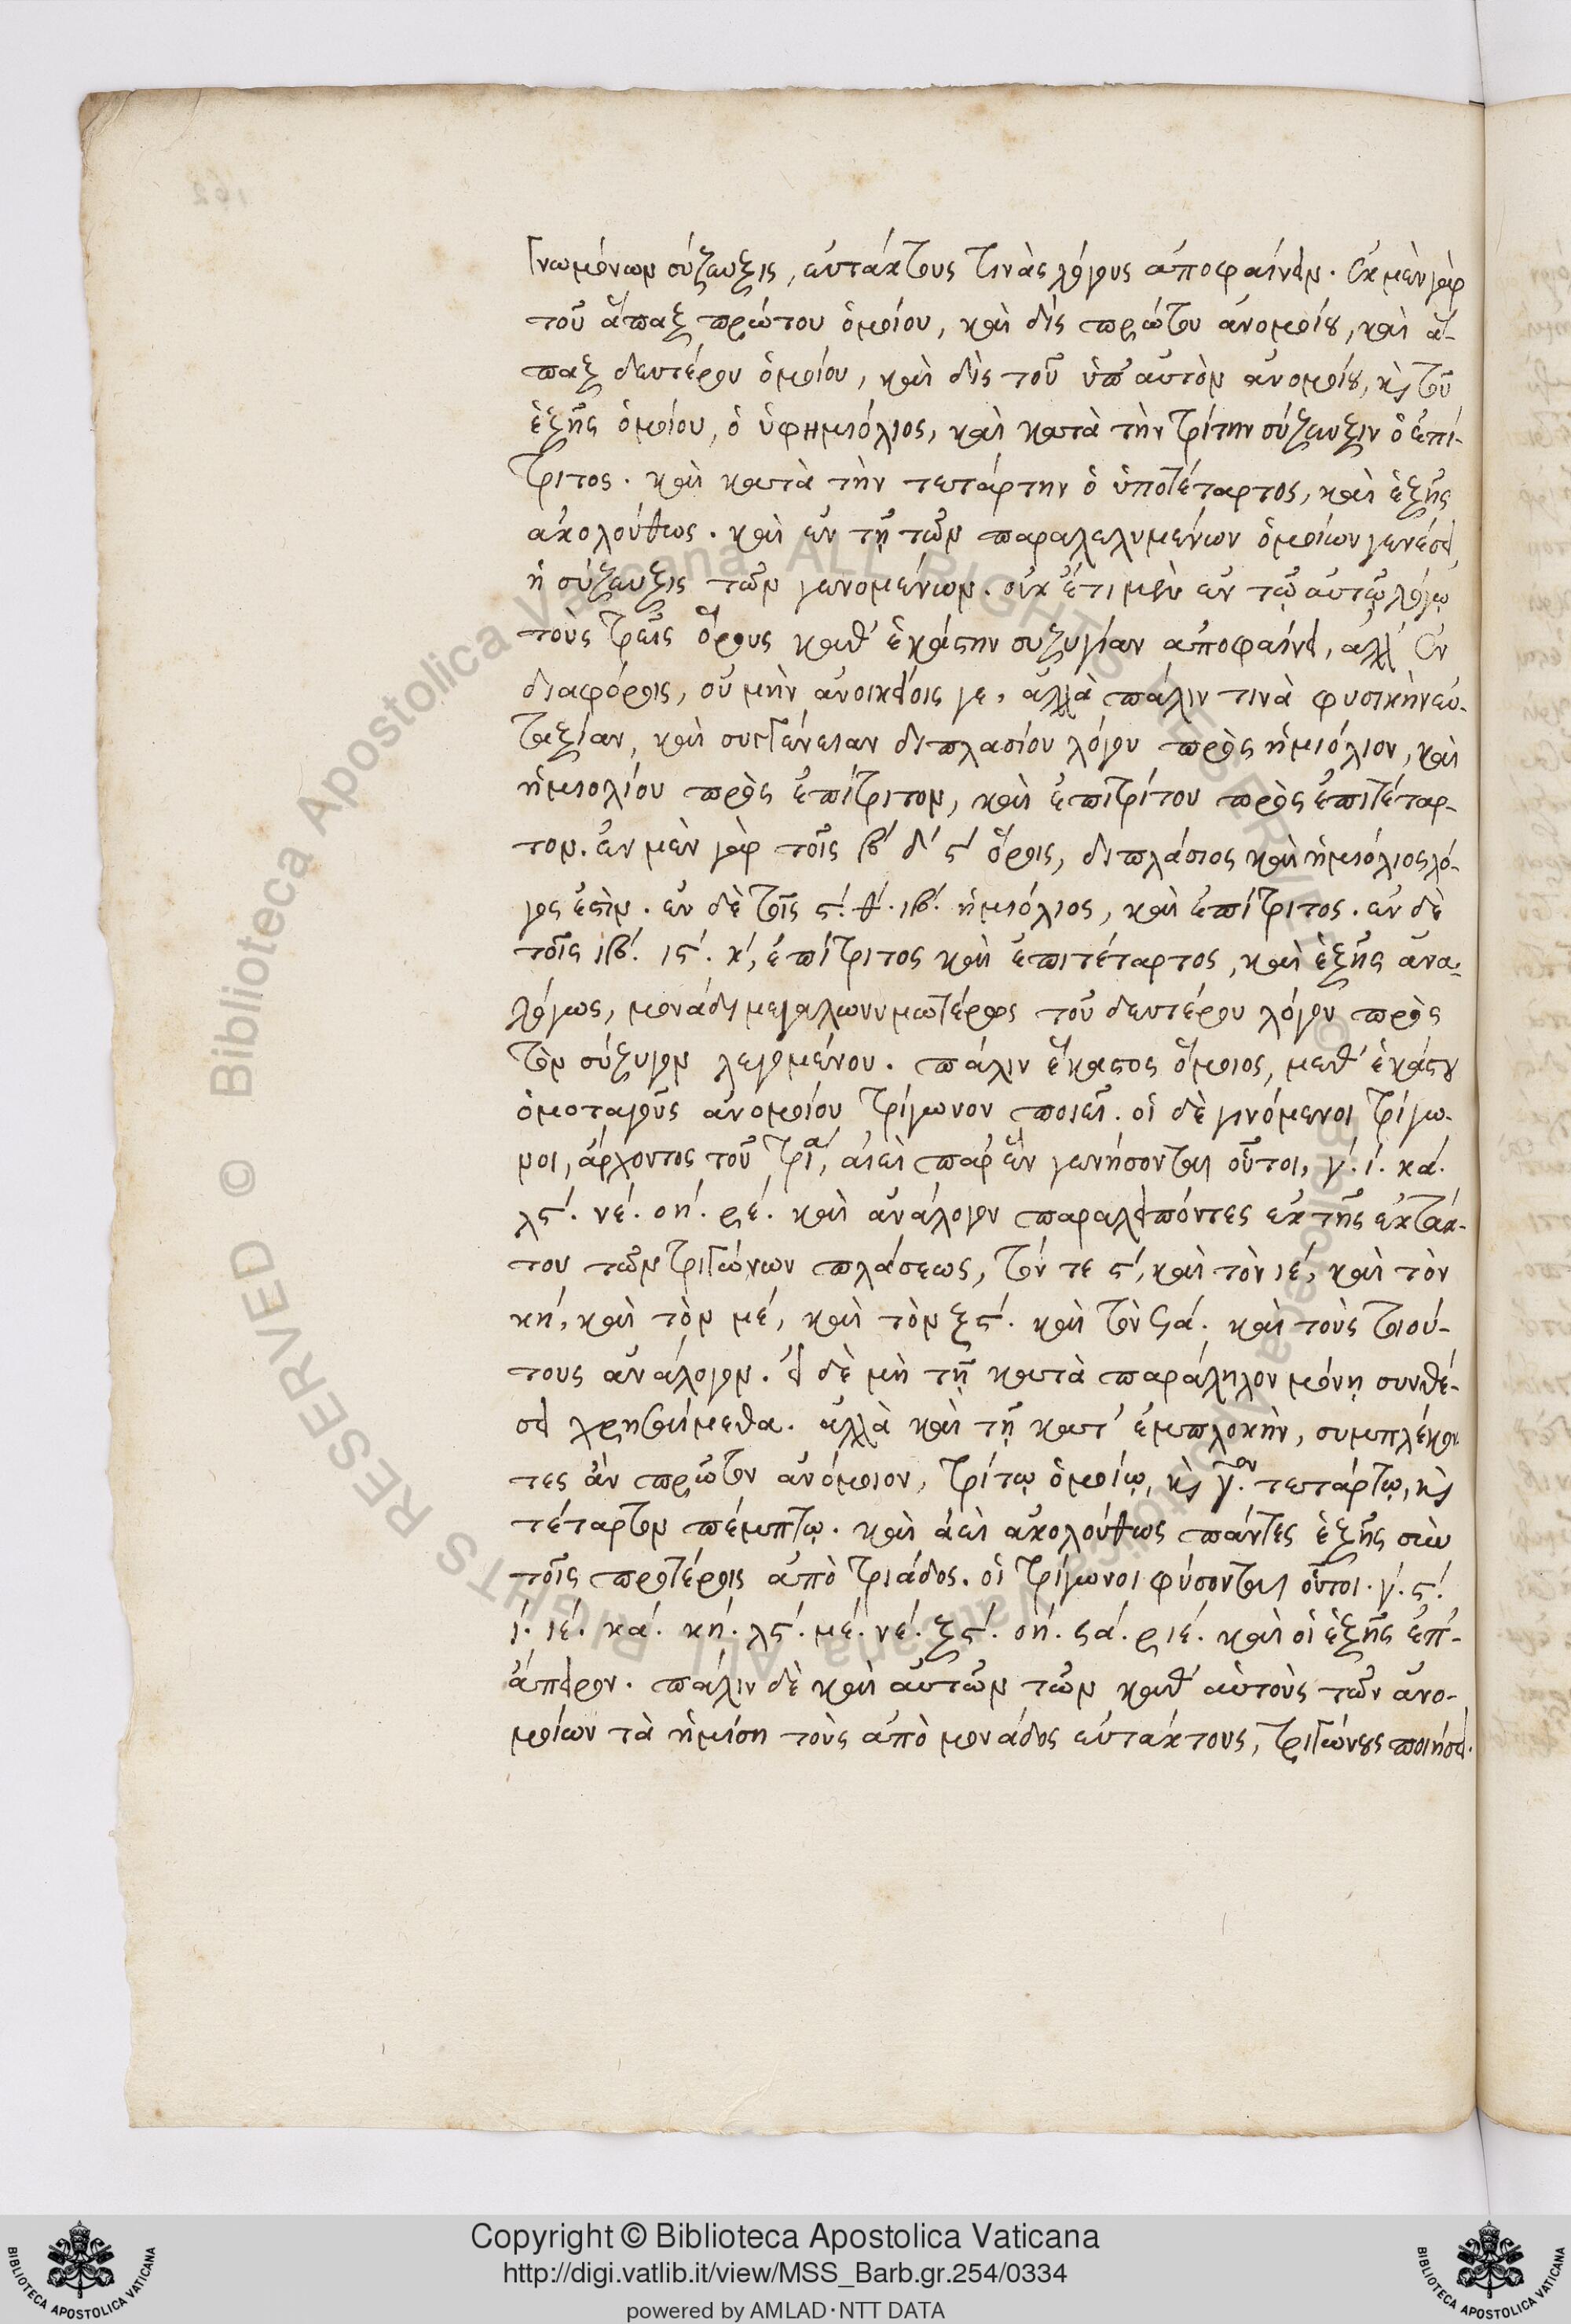 γνωμόνων σύζευξις, εὐτάκτους τινὰς λόγους ἀποφαίνειν. ἐκ μὲν γὰρ
τοῦ ἅπαξ πρώτου ὁμοίου, καὶ δὶς πρώτου ἀνομοίου, καὶ ἅ-
παξ δευτέρου ὁμοίου, καὶ δὶς τοῦ ὑπ' αὐτὸν ἀνομοίου, καὶ τοῦ
ἑξῆς ὁμοίου, ὁ ὑφημιόλιος, καὶ κατὰ τὴν τρίτην σύζευξιν ὁ ἐπί-
τριτος. καὶ κατὰ τὴν τετάρτην ὁ ὑποτέταρτος, καὶ ἑξῆς
ἀκολούθως. καὶ ἐν τῇ τῶν παραλελυμένων ὁμοίων γενέσει
ἡ σύζευξις τῶν γενομένων. οὐκ έτι μὲν ἐν τῷ αὐτῷ λόγῳ
τοὺς τρεῖς ὅρους καθ' ἑκάστην συζυγίαν ἀποφαίνει, ἀλλ' ἐν
διαφόροις, οὐ μὴν ἀνοικείοις γε, ἀλλὰ πάλιν τινὰ φυσικὴν εὐ-
ταξίαν, καὶ συγγένειαν διπλασίου λόγου πρὸς ἡμιόλιον, καὶ
ἡμιολίου πρὸς ἐπίτριτον, καὶ ἐπιτρίτου πρὸς ἐπιτέταρ-
τον. ἐν μὲν γὰρ τοῖς β' δ' ϛ' ὅροις, διπλάσιος καὶ ἡμιόλιος λό-
γος ἐστίν. ἐν δὲ τοῖς ϛ'. θ'. ιβ'. ἡμιόλιος, καὶ ἐπίτριτος. ἐν δὲ
τοῖς ιβ'. ιϛ'. κ', ἐπίτριτος καὶ ἐπιτέταρτος, καὶ ἑξῆς ἀνα-
λόγως, μονάδι μεγαλωνυμωτέρος τοῦ δευτέρου λόγου πρὸς
τὸν σύζυγον λεγομένου. πάλιν ἕκαστος ὅμοιος, μεθ' ἑκάστου
ὁμοταγοῦς ἀνομοίου τρίγωνον ποιεῖ. οἱ δὲ γινόμενοι τρίγω-
νοι, ἄρχοντος τοῦ τρία, αἰεὶ παρ' ἓν γεννήσονται οὗτοι, γ'. ι'. κα'.
λϛ'. νε'. οη'. ρε'. καὶ ἀνάλογον παραλειπόντες ἐκ τῆς ἐκτάκ-
του τῶν τριγώνων πλάσεως, τόν τε ϛ', καὶ τὸν ιε', καὶ τὸν
κη', καὶ τὸν με', καὶ τὸν ξϛ'. καὶ τὸν ϟα'. καὶ τοὺς τοιού-
τους ἀνάλογον. εἰ δὲ μὴ τῇ κατὰ παράληλον μόνῃ συνθέ-
σει χρησαίμεθα. ἀλλὰ καὶ τῇ κατ' ἐμπλοκὴν, συμπλέκον
τες ἂν πρῶτον ἀνόμοιον, τρίτῳ ὁμοίῳ, καὶ γ.ον τετάρτῳ, καὶ
τέταρτον πέμπτῳ. καὶ ἀεὶ ἀκολούθως πάντες ἑξῆς σὺν
τοῖς προτέροις ἀπὸ τριάδος. οἱ τρίγωνοι φύσονται οὗτοι. γ'. ϛ'.
ι'. ιε'. κα'. κη'. λϛ'. με'. νε'. ξϛ'. οη'. ϟα'. ριε'. καὶ οἱ ἑξῆς ἐπ'-
άπειρον. πάλιν δὲ καὶ αὐτῶν τῶν καθ' αὑτοὺς τῶν ἀνο-
μοίων τὰ ἡμίση τοὺς ἀπὸ μονάδος εὐτάκτους, τριγώνους ποιήσει.
Copyright © Biblioteca Apostolica Vaticana
http://digi.vatlib.it/view/MSS_Barb.gr.254/0334
powered by AMLAD·NTT DATA
BIBLIOTECA APOSTOLICA VATICANA
BIBLIOTECA APOSTOLICA VATICANA
© Biblioteca Apostolica Vaticana ALL RIGHTS RESERVED
© Biblioteca Apostolica Vaticana ALL RIGHTS RESERVED